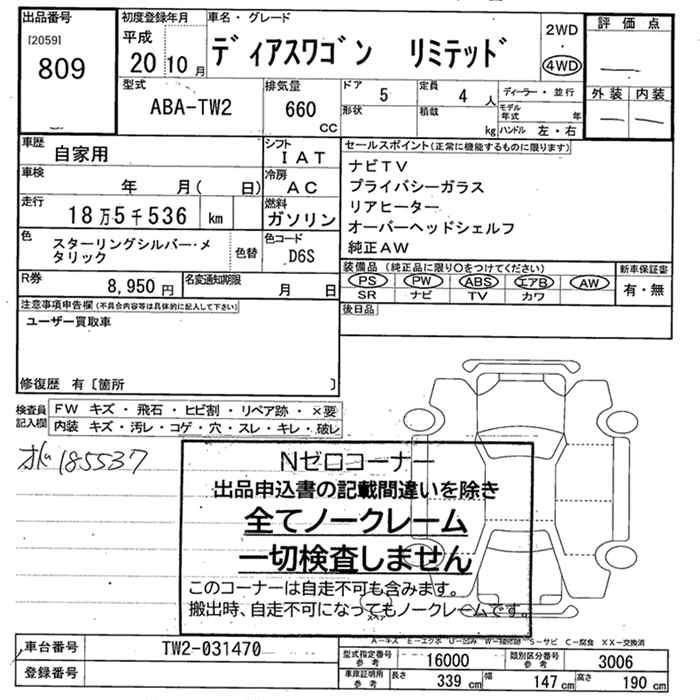 出品番号
[2059]
809
初度登録年月
平成
20 10 月
車名・グレード
ディアスワゴン リミテッド
2WD
・
4WD
評価点
外装 内装
型式
ABA-TW2
排気量
660
cc
ドア 5
形状
定員 4 人
積載 kg
ディーラー・並行
モデル年式 年
ハンドル 左・右
車歴
自家用
シフト
IAT
車検
年 月( 日)
冷房
AC
走行
18万5千536 km
燃料
ガソリン
色
スターリングシルバー・メタリック
色替
色コード
D6S
R券
8,950 円
名変通知期限
月 日
セールスポイント(正常に機能するものに限ります)
ナビTV
プライバシーガラス
リアヒーター
オーバーヘッドシェルフ
純正AW
装備品(純正品に限り○をつけてください)
PS PW ABS エアB AW
SR ナビ TV カワ
新車保証書
有・無
後日品
注意事項申告欄(不具合内容等は具体的に記入して下さい)
ユーザー買取車
修復歴 有〔箇所 〕
検査員記入欄
FW キズ・飛石・ヒビ割・リペア跡・×要
内装 キズ・汚レ・コゲ・穴・スレ・キレ・破レ
185537
Nゼロコーナー
出品申込書の記載間違いを除き
全てノークレーム
一切検査しません
このコーナーは自走不可も含みます。
搬出時、自走不可になってもノークレームです。
A-キズ E-エクボ U-凹み W-補修跡 S-サビ C-腐食 XX-交換済
車台番号
TW2-031470
登録番号
型式指定番号
参考
16000
類別区分番号
参考
3006
車庫証明用
参考
長さ 339 cm
幅 147 cm
高さ 190 cm